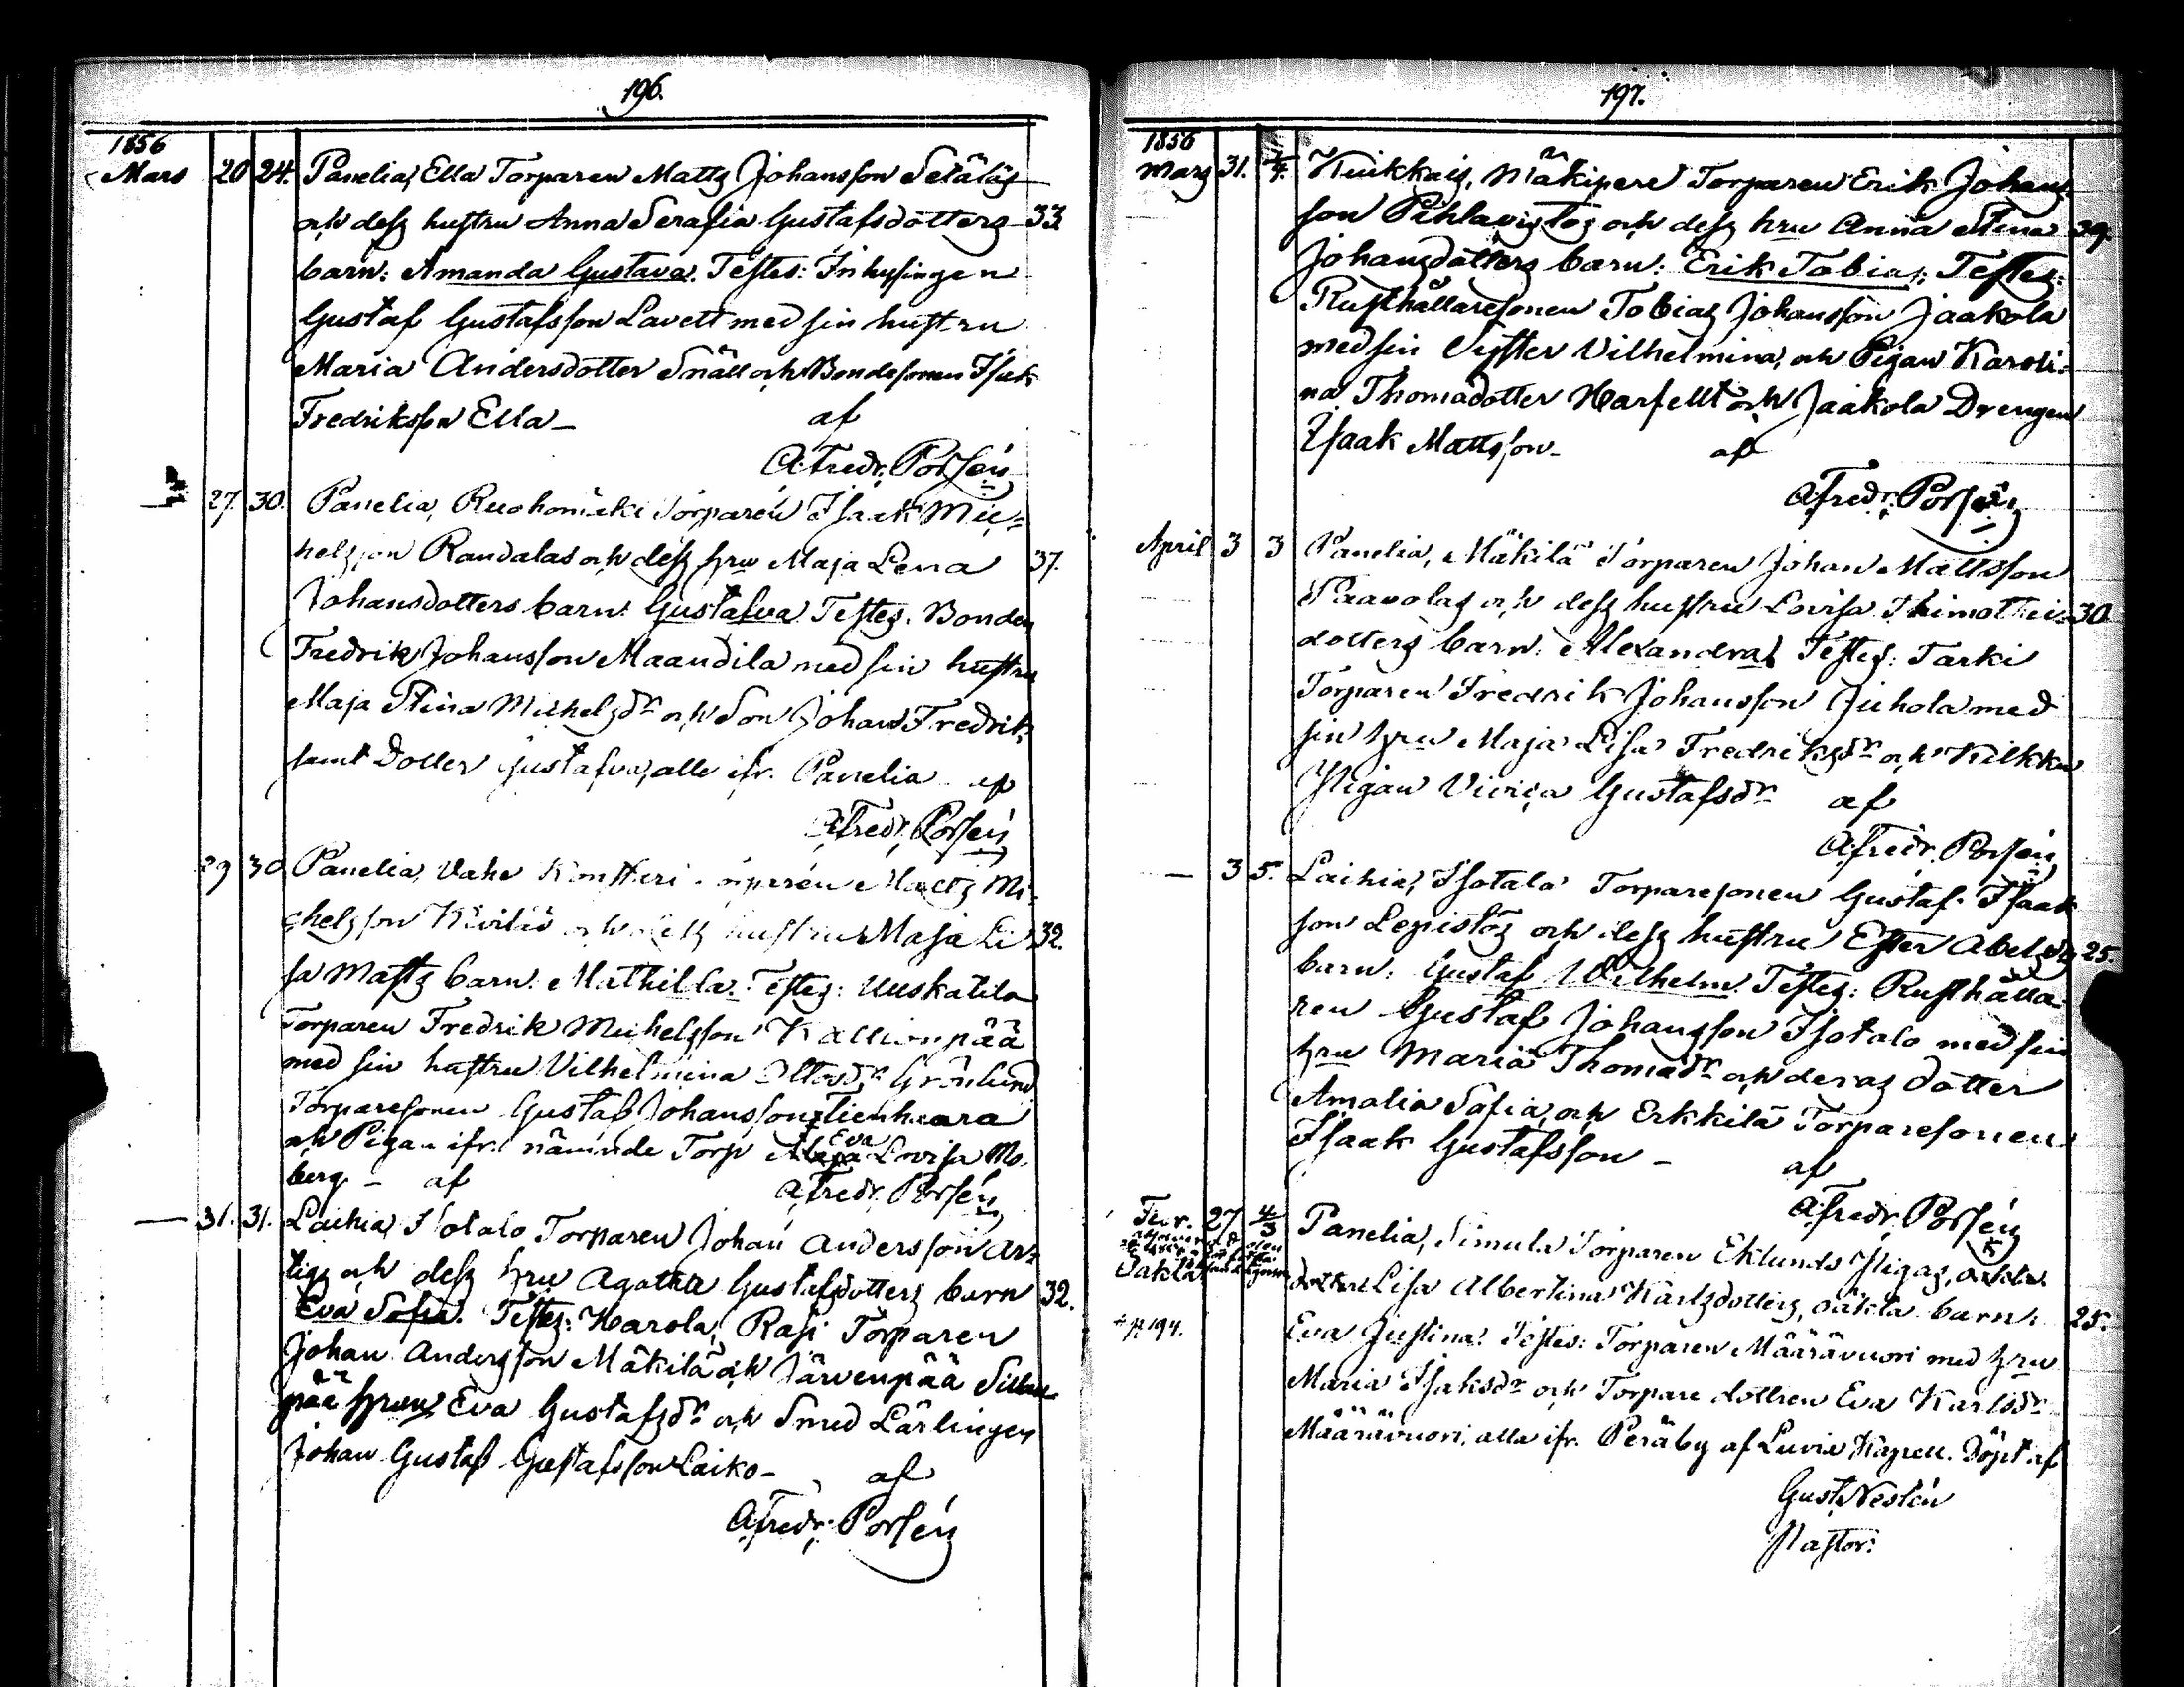 196.
1856
Mars 20 24. Panelia, Ella Torparen Matts Johansson Setäläs
och dess hustru Anna Serafia Gustafsdotters 33.
barn: Amanda Gustava. Testes: Inhysingen
Gustaf Gustafsson Lavett med sin hustru
Maria Andersdotter Snäll och Bondesonen Isak
Fredriksson Ella – af
A. Fredr. Porsén
27. 30. Panelia, Ruohomäki Torparen Isaak Mic-
helsson Randalas och dess hru Maja Lena 37.
Johansdotters barn: Gustafva Testes. Bonden
Fredrik Johansson Maandila med sin hustru
Maja Stina Michelsdr och Son Johan Fredrik,
samt Dotter Gustafva, alle ifr. Panelia af
A. Fredr. Porsén
29 30 Panelia, Vahe Torparen Matts Mi-
chelsson och dess hustru Maja Li- 32.
sa Matts barn: Mathilda. Testes: Uuskatila
Torparen Fredrik Michelsson Kallionpää
med sin hustru Vilhelmina Grönlund
Torparesonen Gustaf Johansson Tienhaara
och Pigan ifr. nämnde Torp Eva Lovisa Mo-
berg – af A. Fredr. Porsén
— 31. 31. Laihia, Isotalo Torparen Johan Andersson Ar-
tigs och dess hru Agatha Gustafsdotters barn 32.
Eva Sofia. Testes: Harola, Rasi Torparen
Johan Andersson Mäkilä och Järvenpää Sillan-
pää hrun Eva Gustafsdr och Smed Lärlingen
Johan Gustaf Gustafsson Laiko – af
A. Fredr. Porsén
197.
1856
Mars 31. 1/4. Kuikkais, Mäkipere Torparen Erik Johans-
son Pihlavistos och dess hru Anna Stina 39.
Johansdotters barn: Erik Tobias. Testes:
Rusthållaresonen Tobias Johansson Jaakola
med sin Syster Vilhelmina, och Pigan Karoli-
na Thomadotter Harfellt och Jaakola Drengen
Isaak Mattsson – af
A. Fredr. Porsén
April 3 3 Panelia, Mäkilä Torparen Johan Mattsson
Paavolas och dess hustru Lovisa Thimothei- 30.
dotters barn: Alexandra. Testes: Tarki
Torparen Fredrik Johansson Juhola med
sin hru Maja Lisa Fredriksdr och Kilkku
Pigan Viviça Gustafsdr af
A. Fredr. Porsén
— 3 5. Laihia, Isotalo Torparesonen Gustaf Isaak-
son Lepistös och dess hustru Ester Abelsdrs 25.
barn: Gustaf Wilhelm. Testes: Rusthålla-
ren Gustaf Johansson Isotalo med sin
hru Maria Thomadr och deras Dotter
Amalia Sofia, och Erkkilä Torparesonen
Isaak Gustafsson – af
A. Fredr. Porsén
Febr. 27 4/3 Panelia, Simula Torparen Eklunds Pigas,
dottren Lisa Albertina Karlsdotters, oäkta barn: 25.
Oäkta
Eva Justina. Testes: Torparen Määrävuori med hru
+ p. 194.
Maria Isaksdr och Torpare dottren Eva Karlsdr
Määrävuori, alla ifr. Peräby af Luvia Kapell. Döpt af
Gust. Nestén
Pastor.